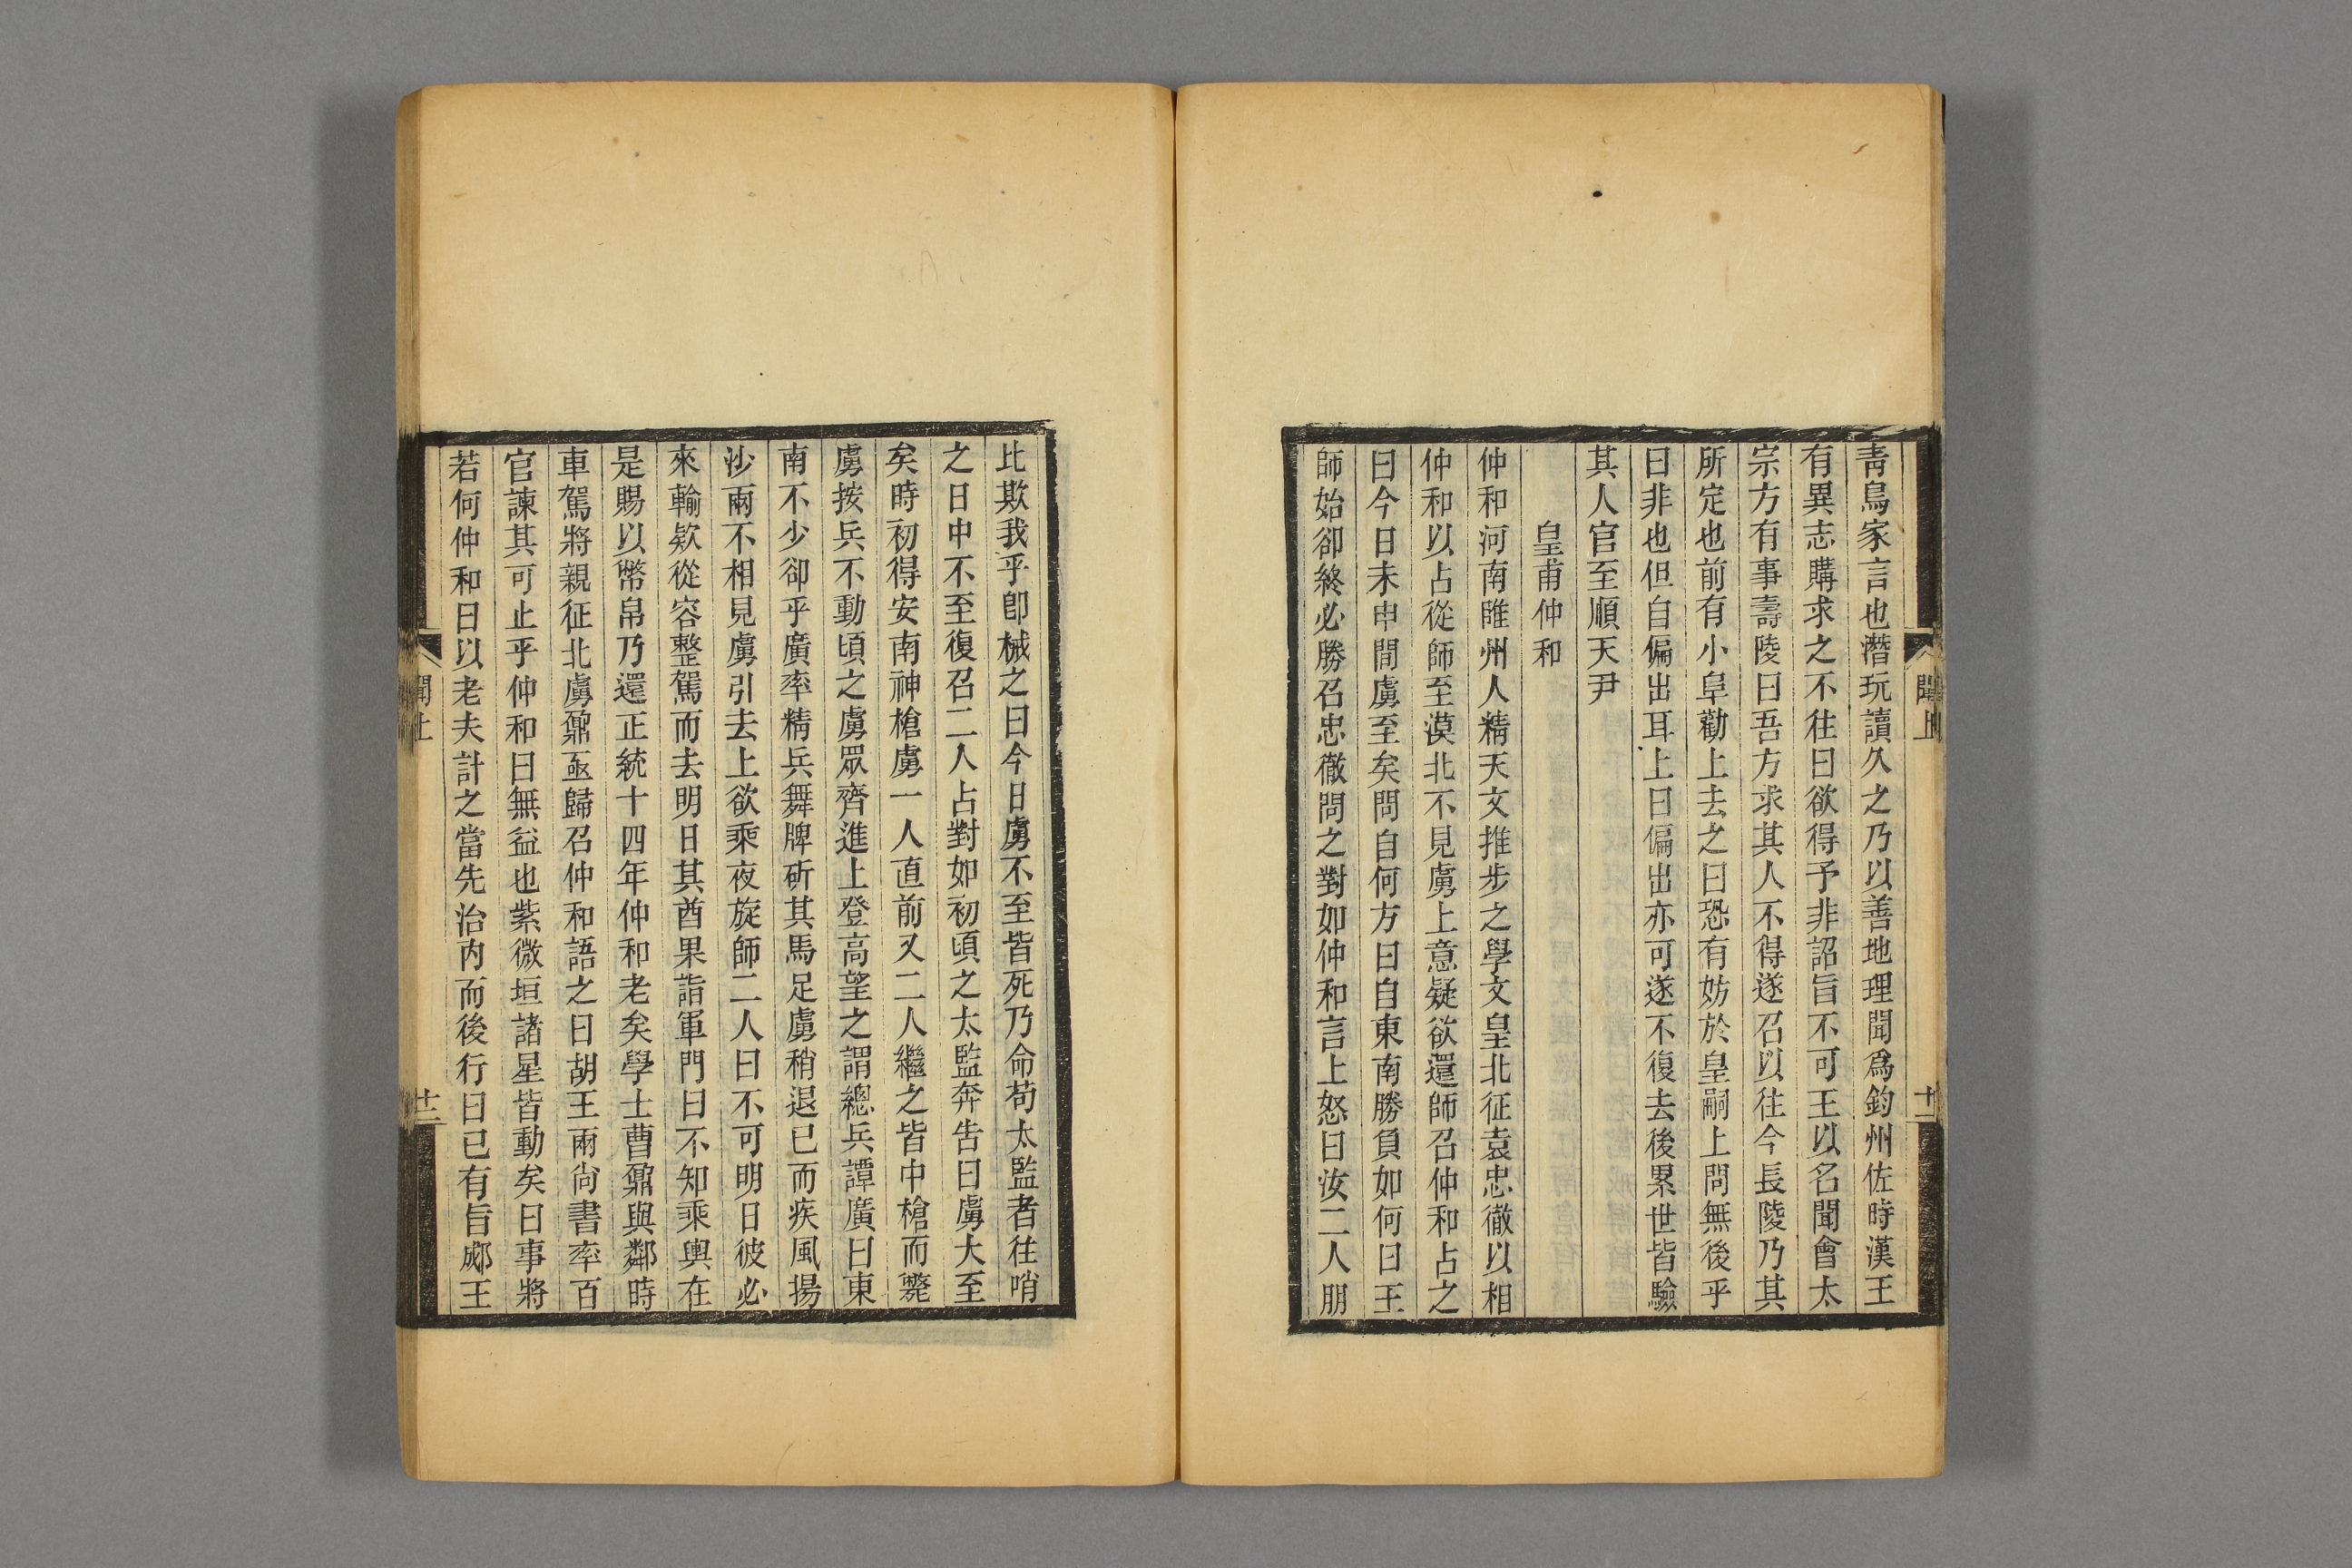 靑烏家言也潛玩讀久之乃以善地理聞爲鈞州佐時漢王
有異志購求之不往曰欲得予非詔旨不可王以名聞會太
宗方有事壽陵曰吾方求其人不得遂召以往今長陵乃其
所定也前有小阜勸上去之曰恐有妨於皇嗣上問無後乎
曰非也但自偏出耳上曰偏出亦可遂不復去後累世皆驗
其人官至順天尹
皇甫仲和
仲和河南睢州人精天文推步之學文皇北征袁忠徹以相
仲和以占從師至漠北不見虜上意疑欲還師召仲和占之
曰今日未申間虜至矣問自何方曰自東南勝負如何曰王
師始卻終必勝召忠徹問之對如仲和言上怒曰汝二人朋
聞上
十一
比欺我乎卽械之曰今日虜不至皆死乃命苟太監者往哨
之日中不至復召二人占對如初頃之太監奔告曰虜大至
矣時初得安南神槍虜一人直前又二人繼之皆中槍而斃
虜按兵不動頃之虜眾齊進上登高望之謂總兵譚廣曰東
南不少卻乎廣率精兵舞牌斫其馬足虜稍退已而疾風揚
沙兩不相見虜引去上欲乘夜旋師二人曰不可明日彼必
來輸欵從容整駕而去明日其酋果詣軍門曰不知乘輿在
是賜以幣帛乃還正統十四年仲和老矣學士曹鼐與鄰時
車駕將親征北虜鼐亟歸召仲和語之曰胡王兩尙書率百
官諫其可止乎仲和曰無益也紫微垣諸星皆動矣曰事將
若何仲和曰以老夫計之當先治內而後行曰已有旨郕王
聞上
十二